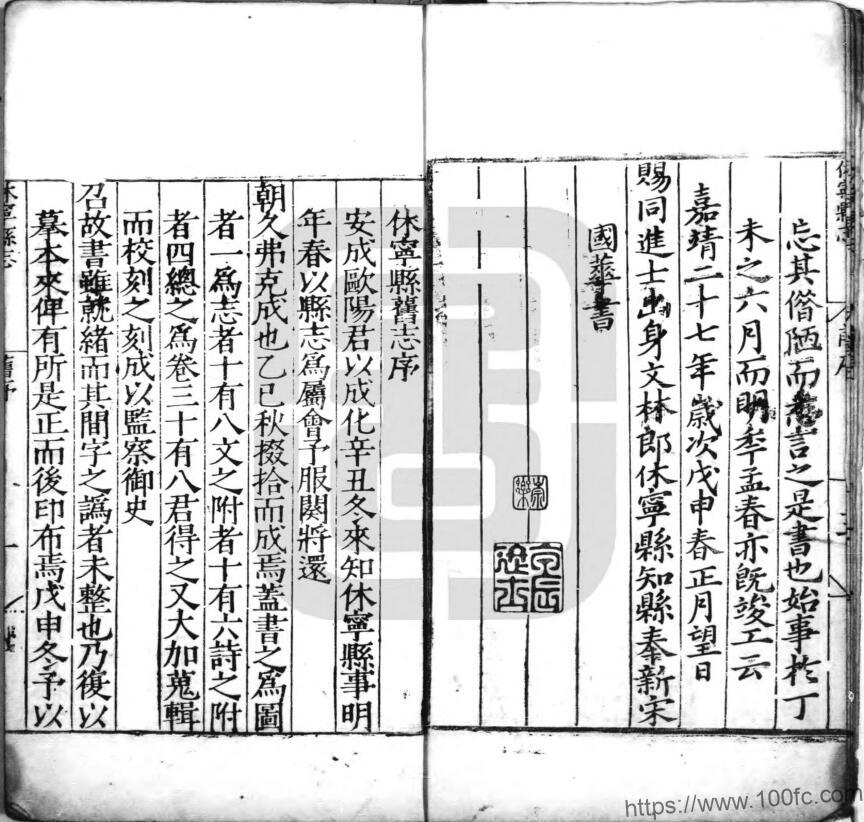 忘其僭陋而言之是書也始事於丁
未之六月而明季孟春亦既竣工云
嘉靖二十七年歲次戊申春正月望日
賜同進士出身文林郎休寧縣知縣奉新宋
國華書
休寧縣舊志序
安成歐陽君以成化辛丑冬來知休寧縣事明
年春以縣志爲屬會予服闋將還
朝久弗克成也乙巳秋掇拾而成焉蓋書之爲圖
者一爲志者十有八文之附者十有六詩之附
者四總之爲卷三十有八君得之又大加蒐輯
而校刻之刻成以監察御史
召故書雖就緒而其間字之譌者未整也乃復以
摹本來俾有所是正而後印布焉戊申冬予以
休寧縣志
舊序
一
https://www.100fc.com